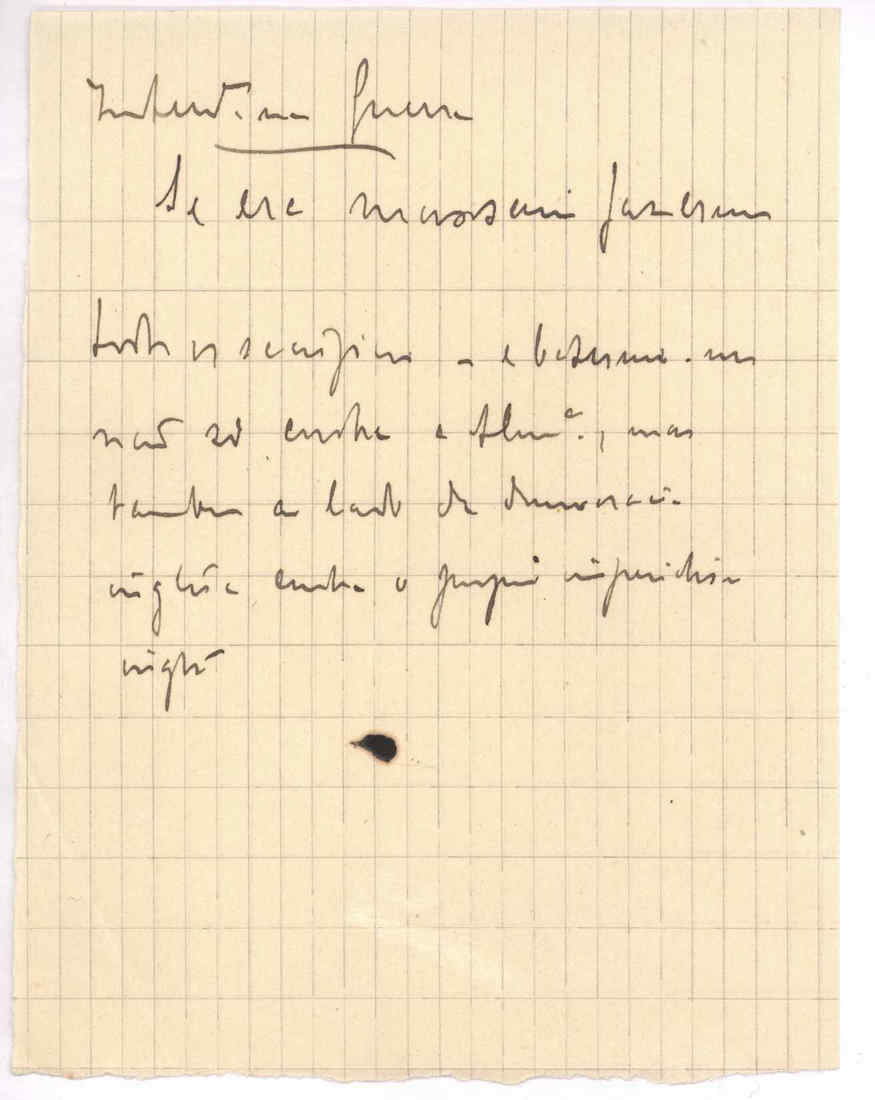 na Guerra
Se era necessario fazermos
todos os sacrificios – e batermo-nos
não só contra a Alemª., mas
tambem ao lado da democracia
inglêsa contra o proprio imperialismo
inglês